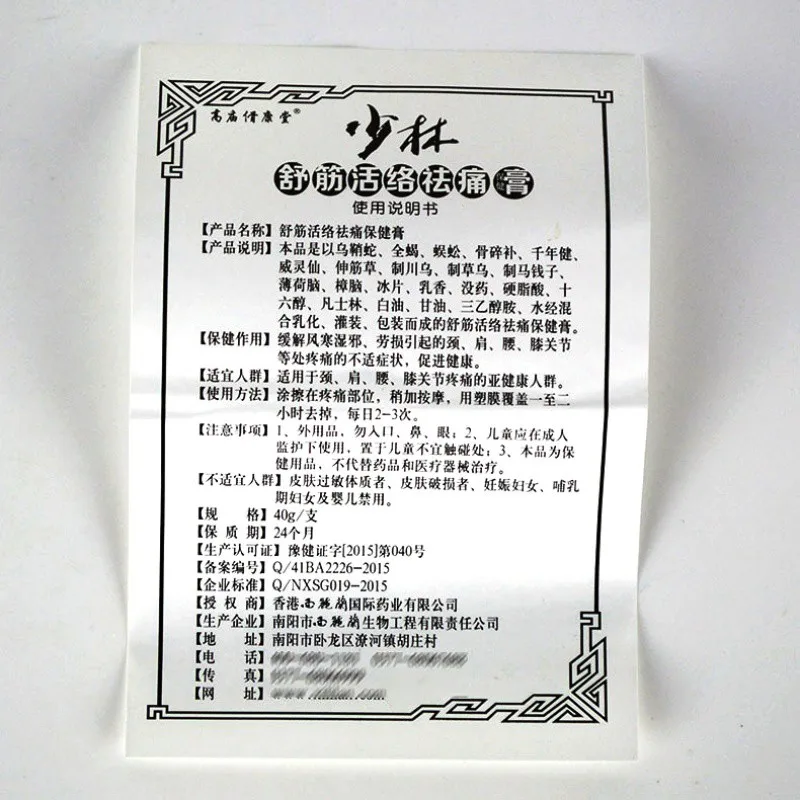 高庙修康堂®
少林
舒筋活络祛痛保健膏
使用说明书
【产品名称】舒筋活络祛痛保健膏
【产品说明】本品是以乌鞘蛇、全蝎、蜈蚣、骨碎补、千年健、
威灵仙、伸筋草、制川乌、制草乌、制马钱子、
薄荷脑、樟脑、冰片、乳香、没药、硬脂酸、十
六醇、凡士林、白油、甘油、三乙醇胺、水经混
合乳化、灌装、包装而成的舒筋活络祛痛保健膏。
【保健作用】缓解风寒湿邪、劳损引起的颈、肩、腰、膝关节
等处疼痛的不适症状，促进健康。
【适宜人群】适用于颈、肩、腰、膝关节疼痛的亚健康人群。
【使用方法】涂擦在疼痛部位，稍加按摩，用塑膜覆盖一至二
小时去掉，每日2-3次。
【注意事项】1、外用品，勿入口、鼻、眼；2、儿童应在成人
监护下使用，置于儿童不宜触碰处；3、本品为保
健用品，不代替药品和医疗器械治疗。
【不适宜人群】皮肤过敏体质者、皮肤破损者、妊娠妇女、哺乳
期妇女及婴儿禁用。
【规 格】40g/支
【保 质 期】24个月
【生产认可证】豫健证字[2015]第040号
【备案编号】Q/41BA2226-2015
【企业标准】Q/NXSG019-2015
【授 权 商】香港西施兰国际药业有限公司
【生产企业】南阳市西施兰生物工程有限责任公司
【地 址】南阳市卧龙区潦河镇胡庄村
【电 话】
【传 真】
【网 址】